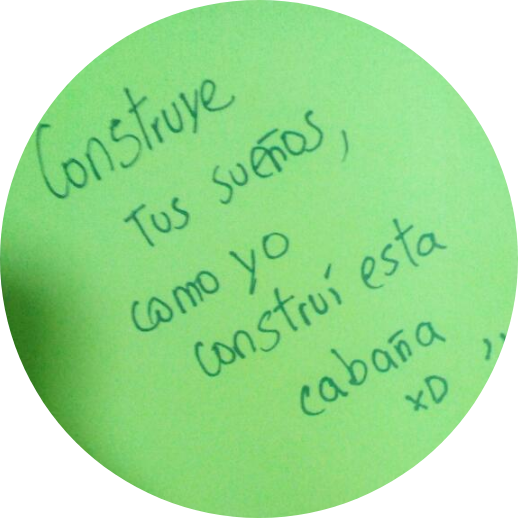 Construye
Tus sueños,
como yo
construí esta
cabaña ,,
xD